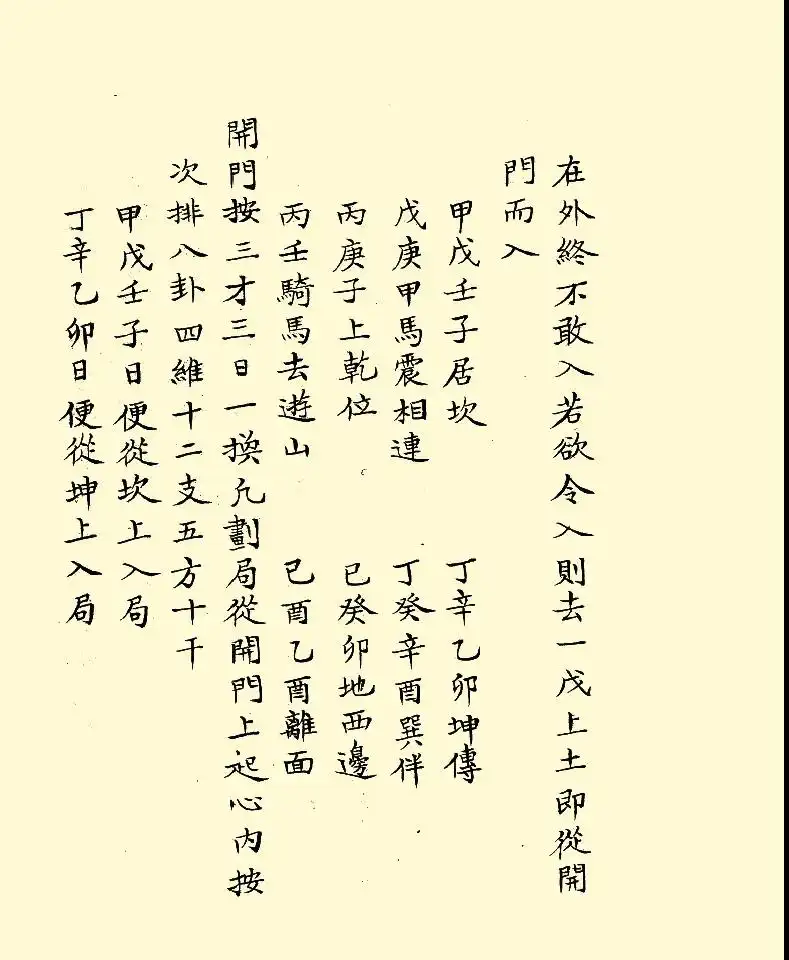 在外終不敢入若欲令入則去一戊上土即從開
門而入
甲戊壬子居坎　丁辛乙卯坤傳
戊庚甲馬震相連　丁癸辛酉巽伴
丙庚子上乾位　已癸卯地西邊
丙壬騎馬去遊山　己酉乙酉離面
開門按三才三日一換凡劃局從開門上起心内按
次排八卦四維十二支五方十干
甲戊壬子日便從坎上入局
丁辛乙卯日便從坤上入局